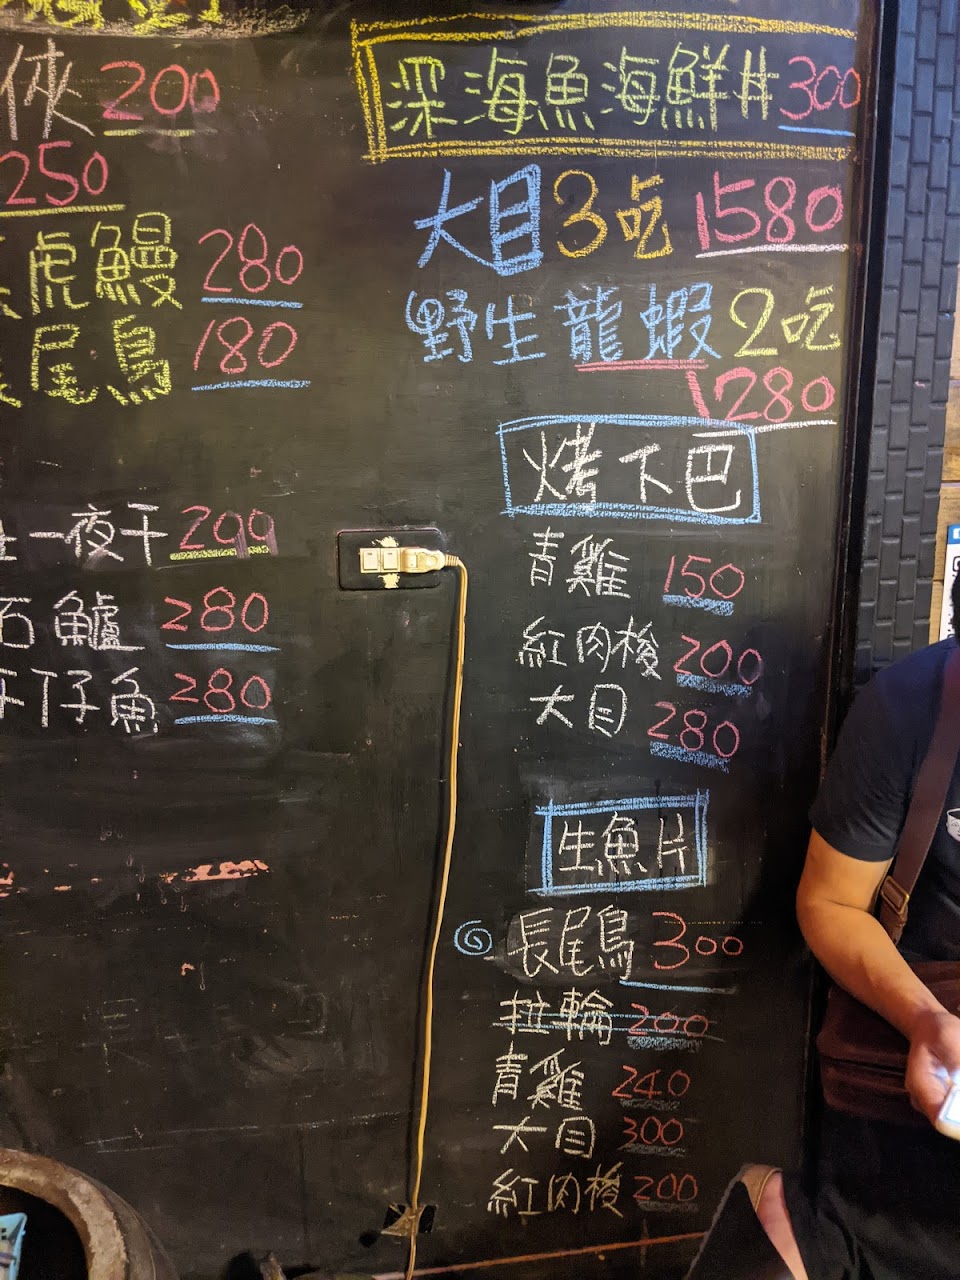 俠 200
250
虎鰻 280
尾鳥 180
一夜干 200
石鱸 280
仔魚 280
深海魚海鮮丼 300
大目 3吃 1580
野生龍蝦 2吃
1280
烤下巴
青雞 150
紅肉梭 200
大目 280
生魚片
長尾鳥 300
拉輪 200
青雞 240
大目 300
紅肉梭 200